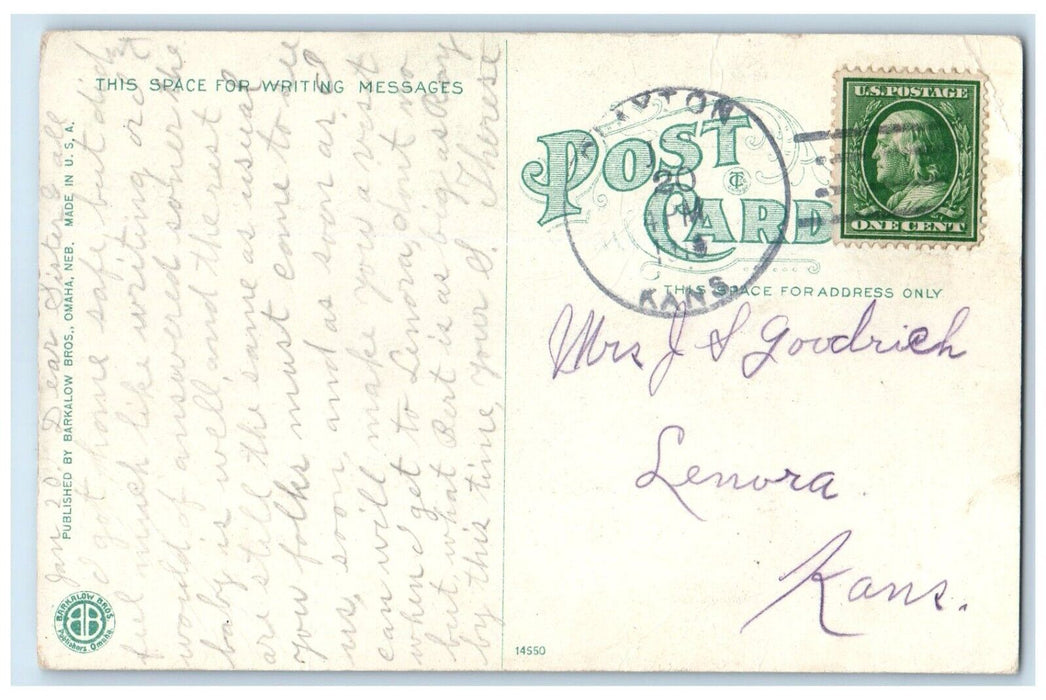 THIS SPACE FOR WRITING MESSAGES
PUBLISHED BY BARKALOW BROS., OMAHA, NEB. MADE IN U.S.A.
BARKALOW BROS.
Publishers Omaha
BB
Jan 20 Dear Sister & all
I got home safe, but didn't
feel much like writing or I
would of answered sooner the
baby is well, and the rest
are still the same as usual
you folks must come to see
us, soon, and as soon as I
can will make you a visit
when I get to Lenora, dont no
but what Bert is as by
by this time, your S. Therese
14550
POST CARD
CLAYTON
20
PM
KANS
U.S. POSTAGE
ONE CENT
THIS SPACE FOR ADDRESS ONLY
Mrs J S Goodrich
Lenora
Kans.